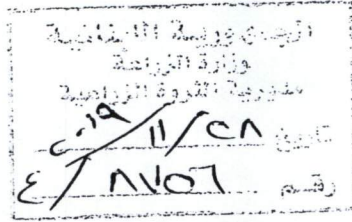 الجمهورية اللبنانية
وزارة الزراعة
مديرية الثروة الزراعية
تاريخ ٢٨/١١/٢٠١٩
رقم ٨٧٥٦/٤